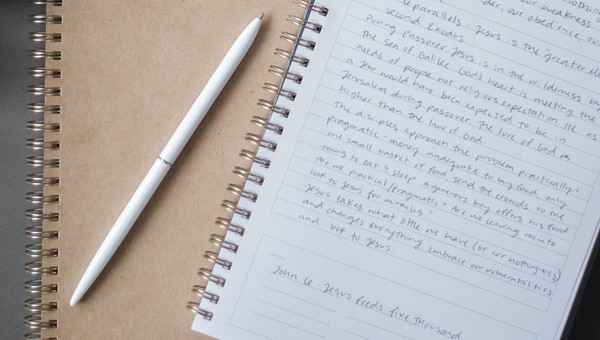 our weakness
order, our obedience, our
parallels - Jesus is the "greater
second Exodus
During Passover Jesus is in the wilderness by
the sea of Galilee God's heart is meeting the
needs of people not religious expectation as
a Jew would have been expected to be in
Jerusalem during passover. The love of God is
higher than the law of God
The disciples approach the problem practically +
pragmatic - money inadequate to buy food, only
one small basket of food, send the crowds to the
towns to eat + sleep A generous boy offers his food
Are we practical/pragmatic? Are we leaving room to
look to Jesus for miracles?
Jesus takes what little we have (or our nothingness)
and changes everything Embrace our vulnerabilities
and look to Jesus.
John 6 Jesus feeds five thousand